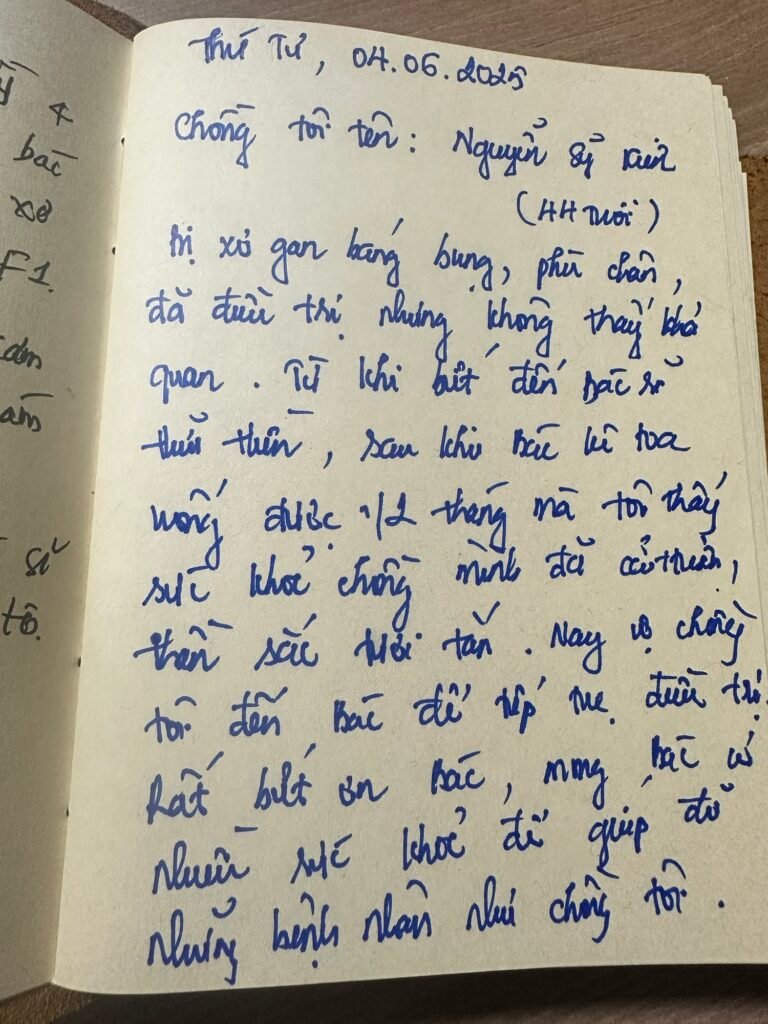 Thứ Tư, 04.06.2025
Chồng tôi tên: Nguyễn Sỹ
(44 tuổi)
Bị xơ gan báng bụng, phù chân,
đã điều trị nhưng không thấy khả
quan. Từ khi biết đến Bác sĩ
, sau khi Bác kê toa
uống được 1/2 tháng mà tôi thấy
sức khoẻ chồng mình đã cải thiện,
thần sắc tươi tắn. Nay vợ chồng
tôi đến Bác để tiếp tục điều trị.
Rất biết ơn Bác, mong Bác có
nhiều sức khoẻ để giúp đỡ
những bệnh nhân như chồng tôi.
bác
xơ
F1.
sĩ